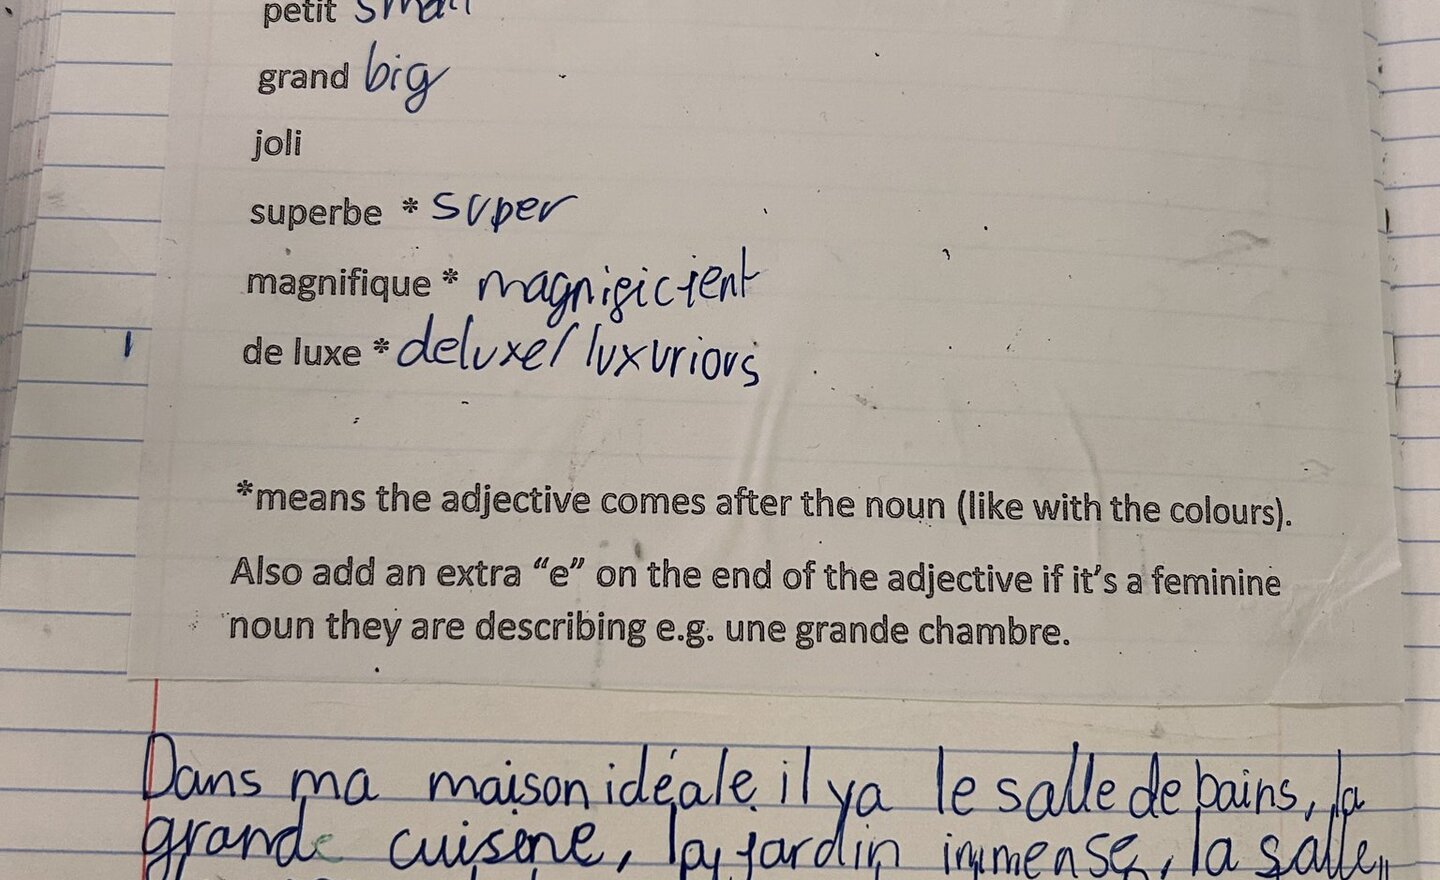 petit small
grand big
joli
superbe * super
magnifique * magnificient
de luxe * deluxe/luxurious
*means the adjective comes after the noun (like with the colours).
Also add an extra “e” on the end of the adjective if it’s a feminine
noun they are describing e.g. une grande chambre.
Dans ma maison idéale il ya le salle de bains, la
grande cuisene, la jardin immense, la salle